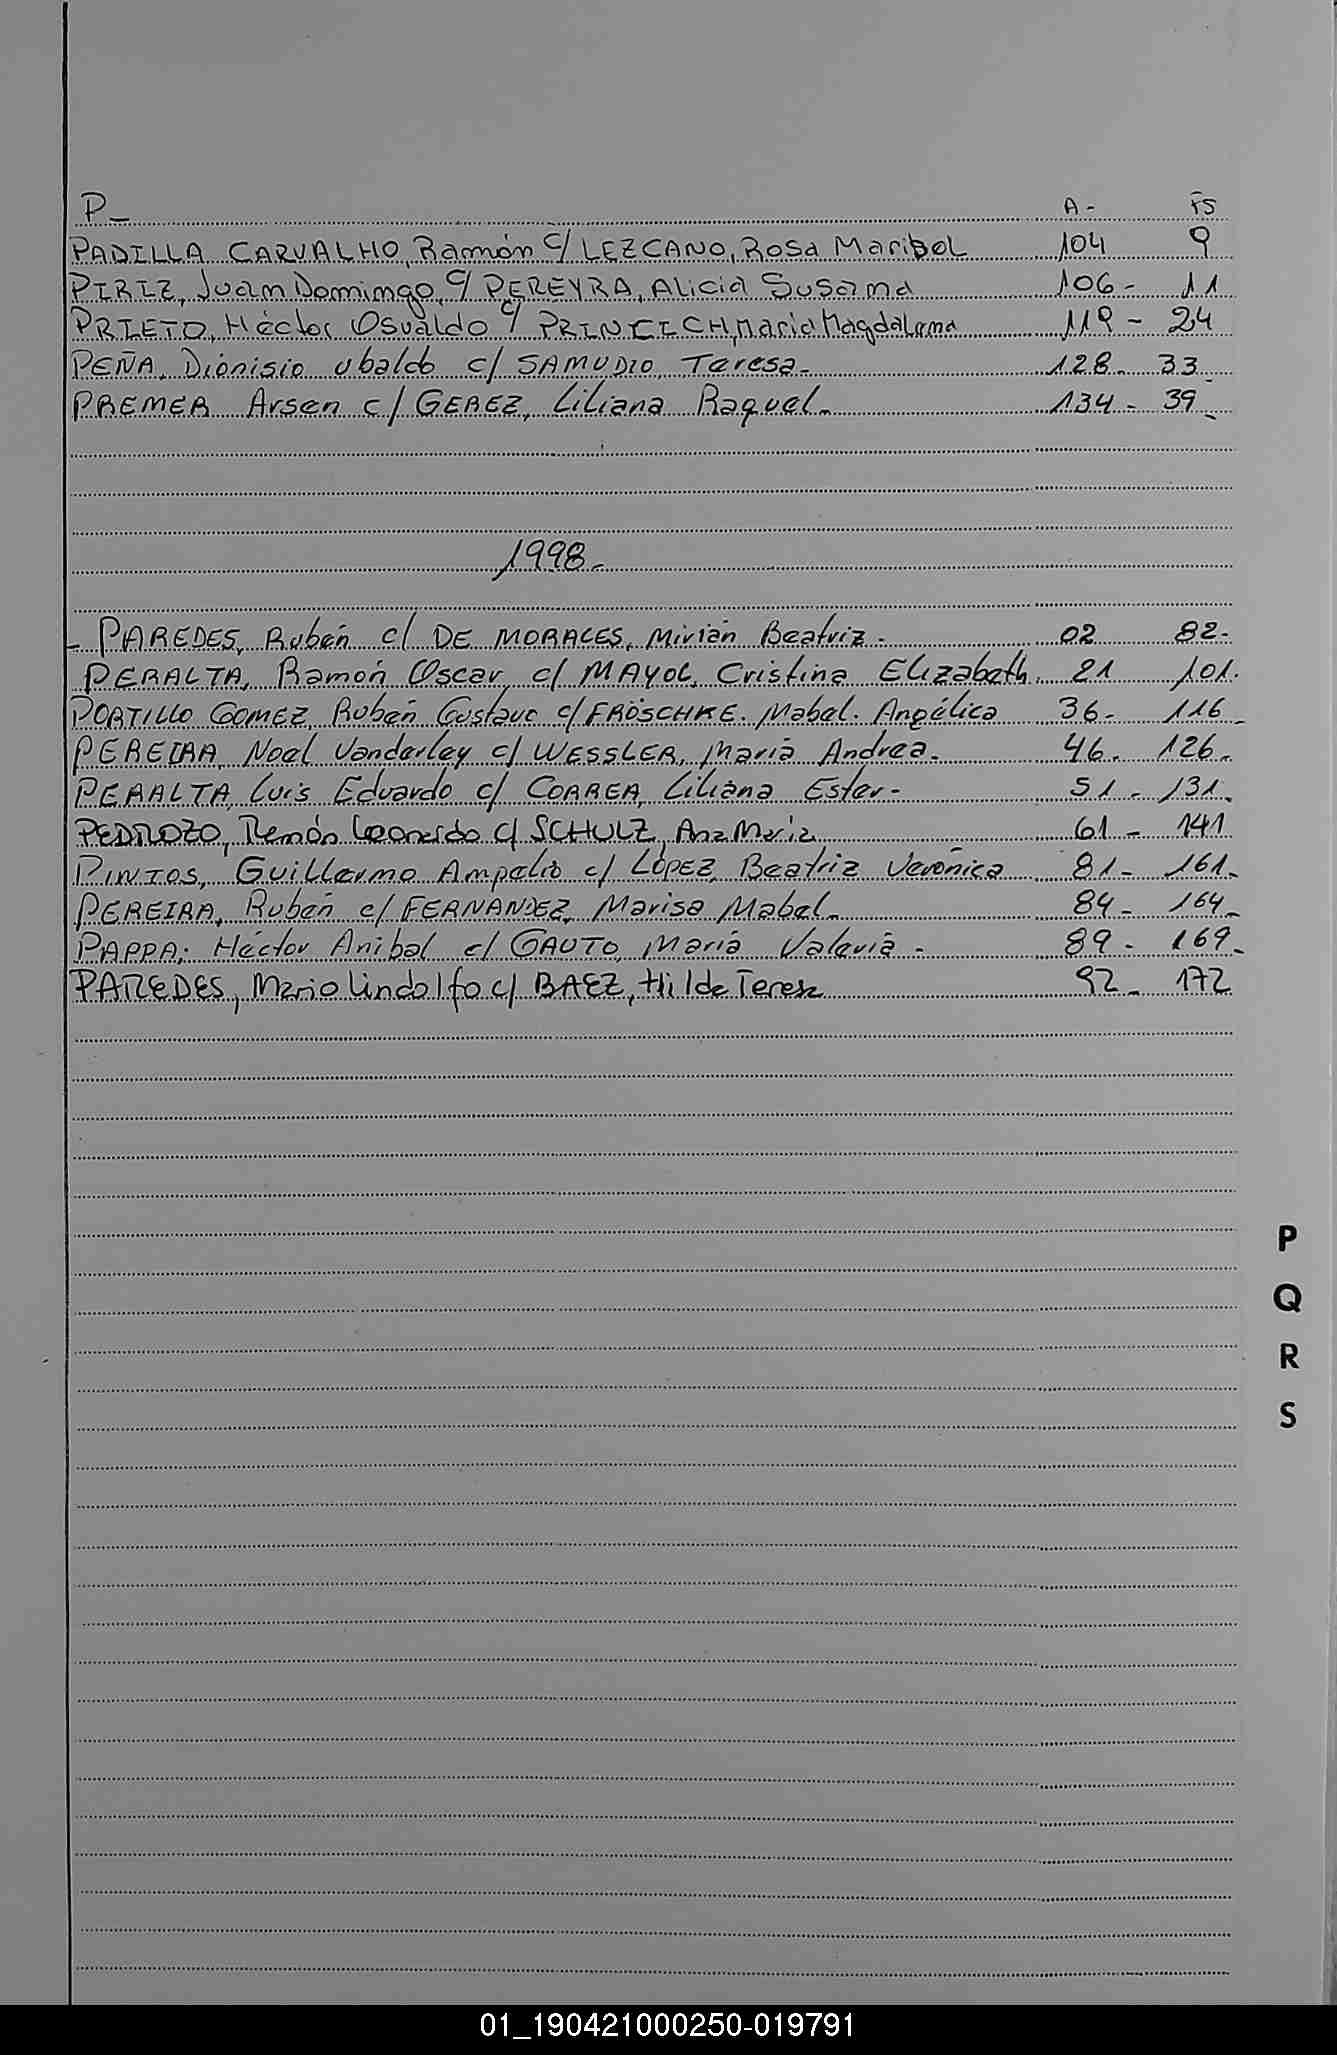 P_ A- FS
PADILLA CARVALHO, Ramón c/ LEZCANO, Rosa Maribel 104 9
PIRIZ, Juan Domingo, c/ PEREYRA, Alicia Susana 106- 11
PRIETO, Héctor Osvaldo c/ PRINCICH, Maria Magdalena 119- 24
PEÑA, Dionisio Ubaldo c/ SAMUDIO, Teresa- 128- 33
PREMER Arsen c/ GEREZ, Liliana Raquel- 134- 39-
1998-
- PAREDES, Rubén c/ DE MORALES, Mirian Beatriz- 02 82-
PERALTA, Ramón Oscar c/ MAYOL, Cristina Elizabeth. 21 101.
PORTILLO GOMEZ, Rubén Gustavo c/ FRÖSCHKE. Mabel. Angélica 36- 116-
PEREIRA, Noel Vanderley c/ WESSLER, María Andrea- 46- 126-
PERALTA, Luis Eduardo c/ CORREA, Liliana Ester- 51- 131-
PEDROZO, Ramón Leonardo c/ SCHULZ, Ana Maria 61- 141
PINTOS, Guillermo Ampelio c/ LÓPEZ, Beatriz Verónica 81- 161-
PEREIRA, Rubén c/ FERNANDEZ, Marisa Mabel- 84- 164-
PAPPA, Héctor Anibal c/ GAUTO, María Valeria- 89- 169-
PAREDES, Mario Lindolfo c/ BAEZ, Hilda Teresa 92- 172
P
Q
R
S
01_190421000250-019791